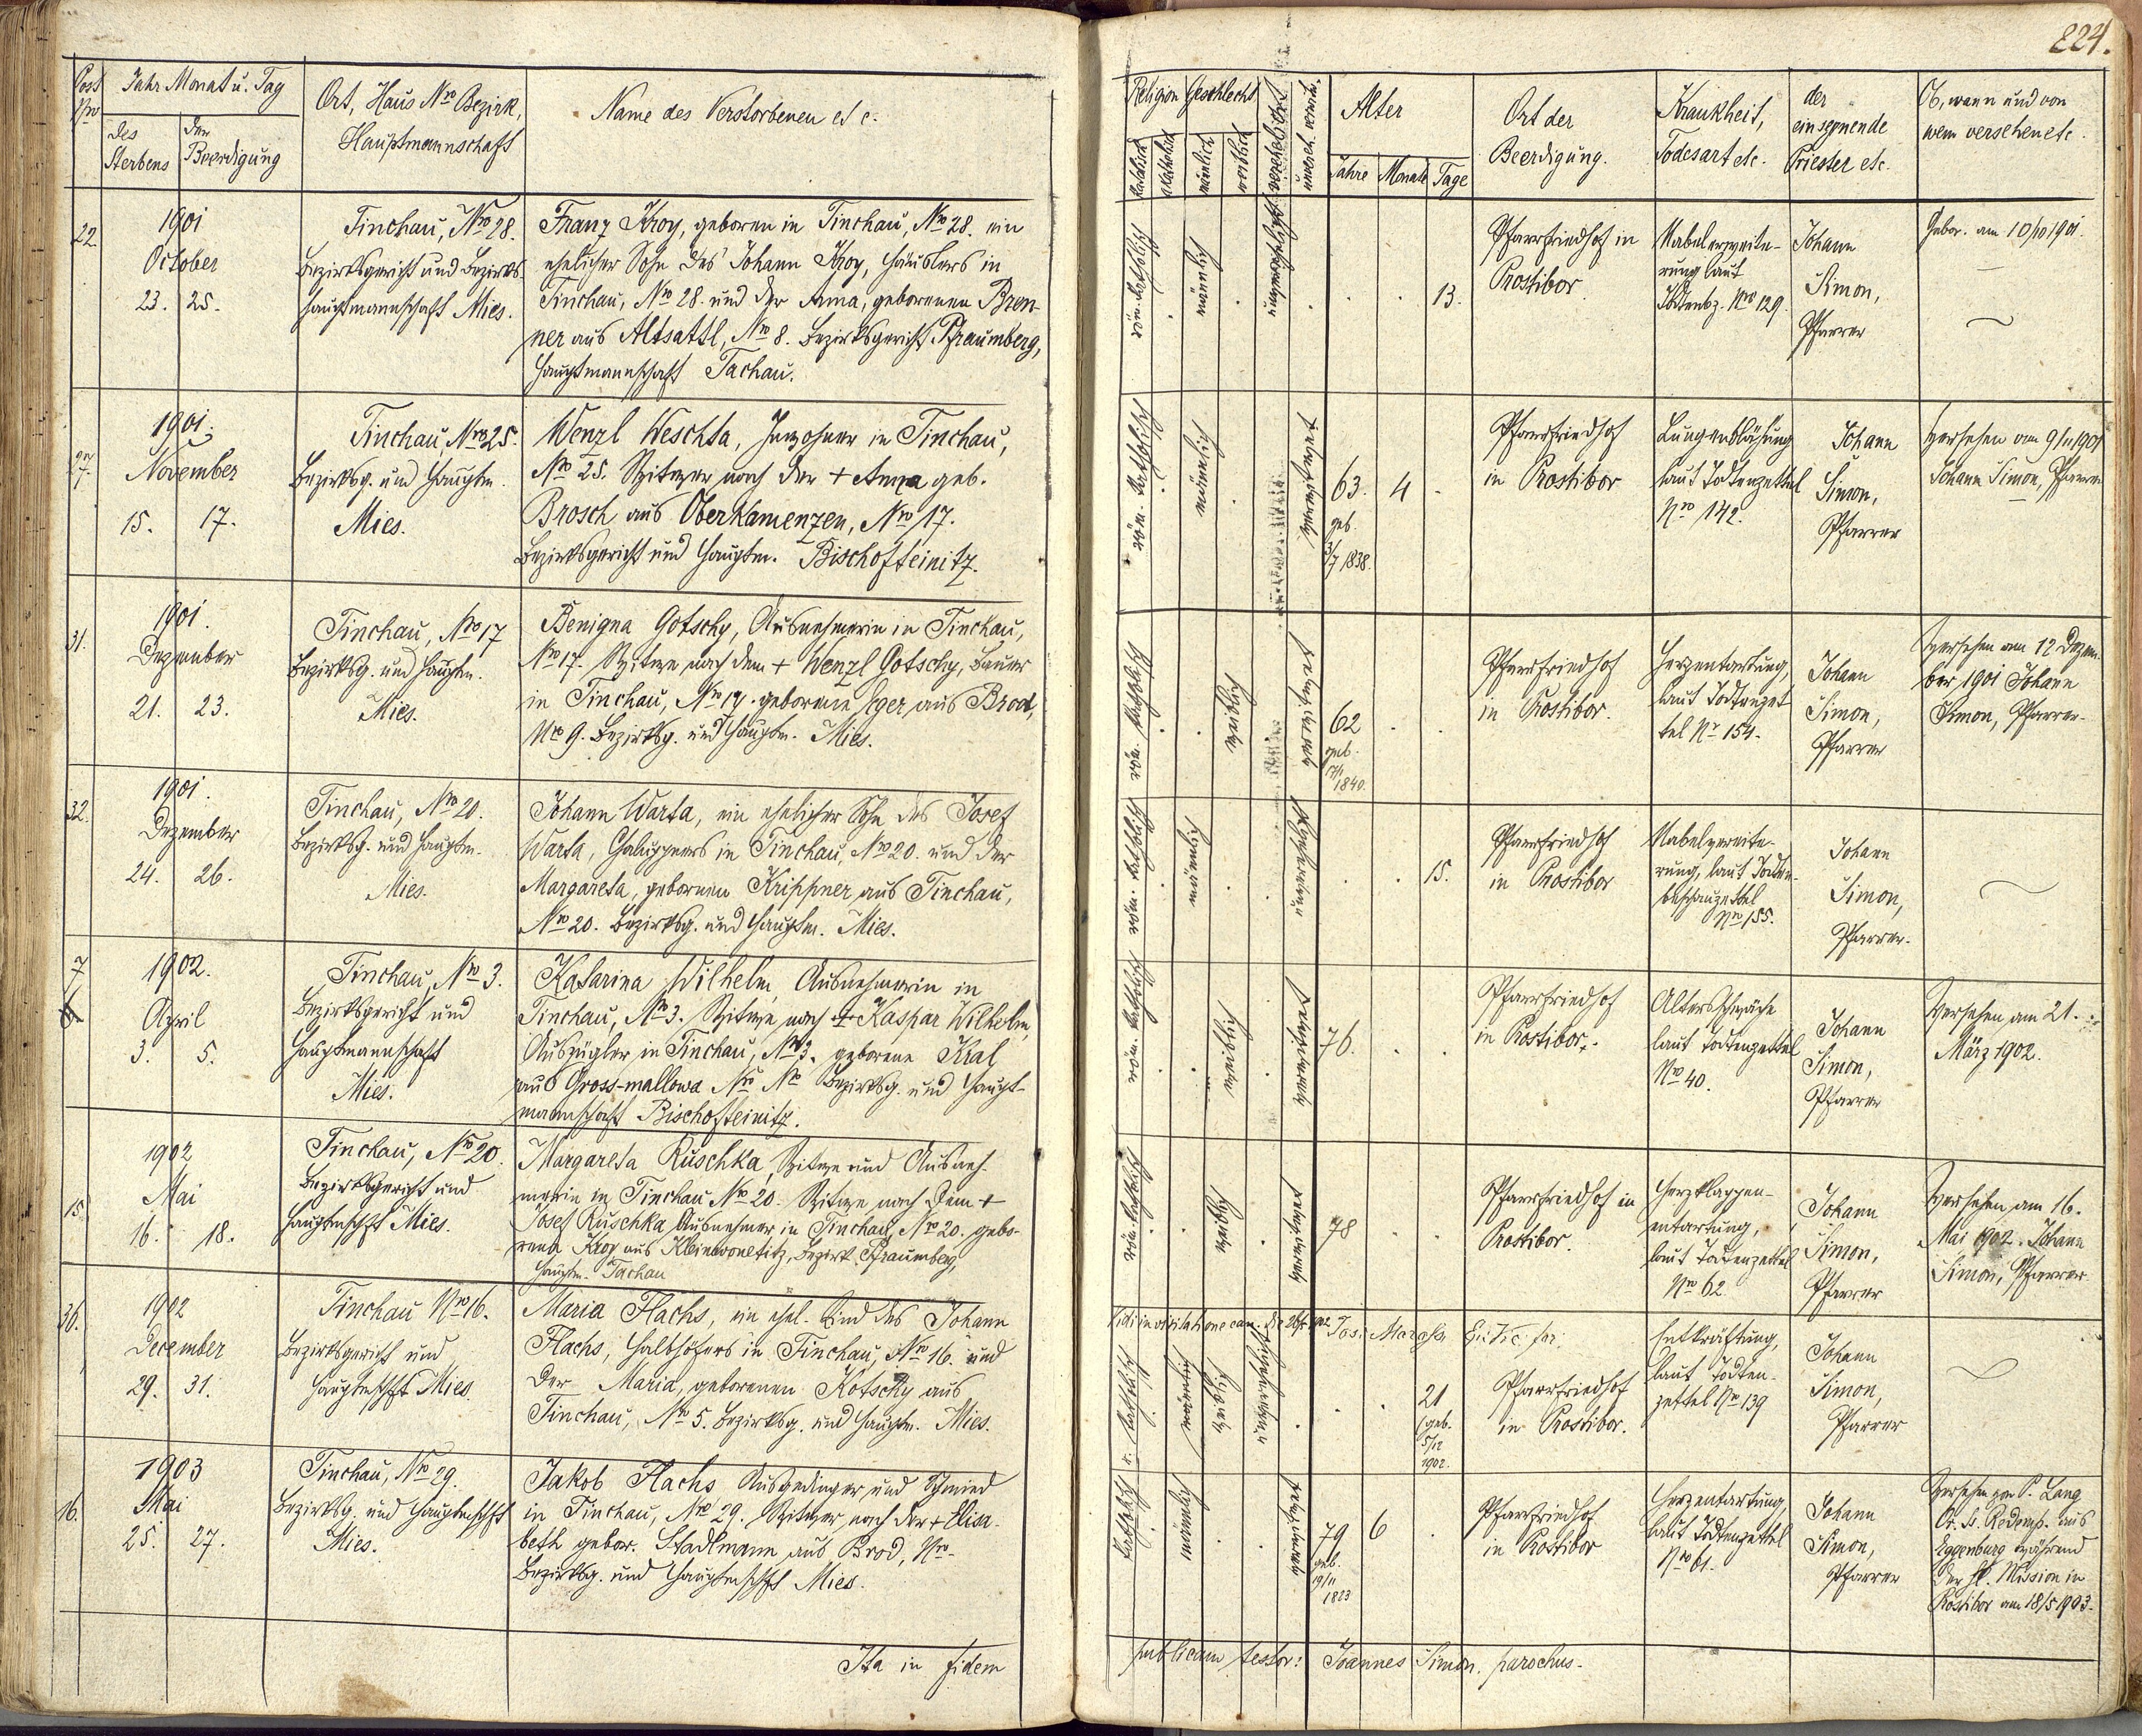 224.
Post Nro
Jahr Monat u. Tag
des Sterbens
der Beerdigung
Ort, Haus Nro Bezirk,
Hauptmannschaft
Name des Verstorbenen etc.
Religion
Geschlecht
katholisch
akatholisch
männlich
weiblich
Alter
Jahre
Monate
Tage
Ort der
Beerdigung.
Krankheit,
Todesart etc.
der
einsegnende
Priester etc.
Ob, wann und von
wem versehen etc.
22.
1901
October
23. 25.
Tinchau, Nro 28.
Bezirksgericht und Bezirks-
hauptmannschaft Mies.
Franz Kroy, geboren in Tinchau, Nro 28. ein
ehelicher Sohn des Johann Kroy, Häuslers in
Tinchau, Nro 28. und der Anna, geborenen Bren-
ner aus Altsattl, Nro 8. Bezirksgericht Pfraumberg,
Hauptmannschaft Tachau.
röm. katholisch
männlich
unverehelicht
13.
Pfarrfriedhof in
Prostibor
Nabelvereite-
rung laut
Todtenbz. Nro 129.
Johann
Simon,
Pfarrer
Gebor. am 10/10 1901.
27.
1901.
November
15. 17.
Tinchau, Nro 25.
Bezirksg. und Hauptm.
Mies.
Wenzl Weschta, Inwohner in Tinchau,
Nro 25. Witwer nach der + Anna geb.
Brosch aus Oberkamenzen, Nro 17.
Bezirksgericht und Hauptm. Bischofteinitz.
röm. katholisch
männlich
verwitwet
63. 4
geb.
3/7 1838.
Pfarrfriedhof
in Prostibor
Lungenblähung
laut Todtenzettel
Nro 142.
Johann
Simon,
Pfarrer
Versehen am 9/11 1901
Johann Simon, Pfarrer
31.
1901.
Dezember
21. 23.
Tinchau, Nro 17
Bezirksg. und Hauptm.
Mies.
Benigna Gotschy, Ausnehmerin in Tinchau,
Nro 17. Witwe nach dem + Wenzl Gotschy, Bauer
in Tinchau, Nro 17. geborene Eger aus Brod,
Nro 9. Bezirksg. und Hauptm. Mies.
röm. katholisch
weiblich
verwitwet
62
geb.
1840.
Pfarrfriedhof
in Prostibor.
Herzentartung,
laut Todtenzet
tel Nr 154.
Johann
Simon,
Pfarrer
Versehen am 12 Dezem-
ber 1901 Johann
Simon, Pfarrer.
32.
1901.
Dezember
24. 26.
Tinchau, Nro 20.
Bezirksg. und Hauptm.
Mies.
Johann Warta, ein ehelicher Sohn des Josef
Warta, Chaluppners in Tinchau, Nro 20. und der
Margareta, geborenen Krippner, aus Tinchau,
Nro 20. Bezirksg. und Hauptm. Mies.
röm. katholisch
männlich
unverehelicht
15.
Pfarrfriedhof
in Prostibor
Nabelvereite-
rung, laut Todten-
beschauzettel
Nro 155.
Johann
Simon,
Pfarrer.
7
1902.
April
3. 5.
Tinchau, Nro 3.
Bezirksgericht und
Hauptmannschaft
Mies.
Katarina Wilhelm, Ausnehmerin in
Tinchau, Nro 3. Witwe nach + Kaspar Wilhelm,
Auszügler in Tinchau, Nro 3. geborene Kral
aus Gross-mallowa Nro Bezirksg. und Haupt-
mannschaft Bischofteinitz.
röm. katholisch
weiblich
verwitwet
76.
Pfarrfriedhof
in Prostibor.
Altersschwäche
laut Todtenzettel
Nro 40.
Johann
Simon,
Pfarrer
Versehen am 21.
März 1902.
15.
1902
Mai
16. 18.
Tinchau, Nro 20.
Bezirksgericht und
Hauptmschft Mies.
Margareta Ruschka, Witwe und Ausneh-
merin in Tinchau Nro 20. Witwe nach dem +
Josef Ruschka, Ausnehmer in Tinchau, Nro 20. gebo-
rene Kroy aus Kleinwonetitz, Bezirk Pfraumberg,
Hauptm. Tachau
röm. katholisch
weiblich
verwitwet
78
Pfarrfriedhof in
Prostibor.
Herzklappen-
entartung,
laut Todtenzettel
Nro 62.
Johann
Simon,
Pfarrer
Versehen am 16.
Mai 1902. Johann
Simon, Pfarrer
Vidi in visitatione can.
36.
1902
December
29. 31.
Tinchau Nro 16.
Bezirksgericht und
Hauptmschft Mies.
Maria Flachs, ein ehel. Kind des Johann
Flachs, Halbhöfers in Tinchau, Nro 16. und
der Maria, geborenen Kotschy aus
Tinchau, Nro 5. Bezirksg. und Hauptm. Mies.
r. katholisch
männlich
weiblich
unverehelicht
21
(geb.
5/12
1902.
Pfarrfriedhof
in Prostibor.
Entkräftung,
laut Todten-
zettel Nro 139
Johann
Simon,
Pfarrer
16.
1903
Mai
25. 27.
Tinchau, Nro 29.
Bezirksg. und Hauptmschft
Mies.
Jakob Flachs Ausgedinger und Schmied
in Tinchau, Nro 29. Witwer nach der + Elisa-
beth gebor. Stadlmann aus Brod, Nro -
Bezirksg. und Hauptmschft Mies.
katholisch
männlich
verwitwet
79 6
geb.
19/11
1823
Pfarrfriedhof
in Prostibor
Herzentartung
laut Todtenzettel
Nro 61.
Johann
Simon,
Pfarrer
Versehen von P. Lang
Redempt. aus
Eggenburg während
der hl. Mission in
Prostibor am 18/5 1903.
Ita in fidem
publicam testor: Joannes Simon, parochus.